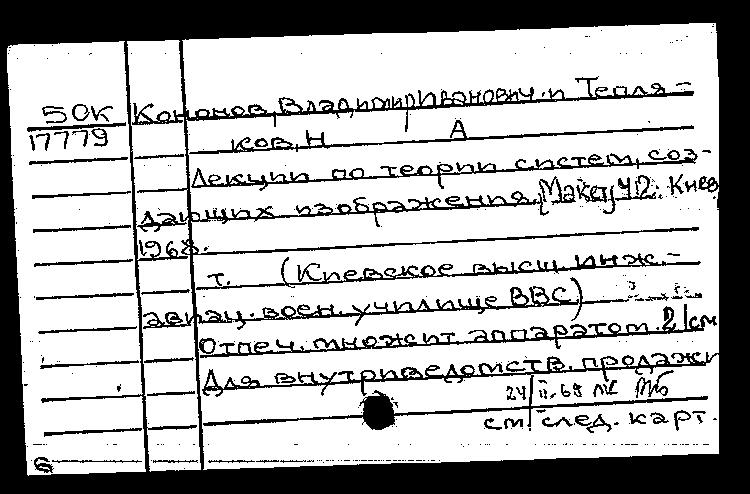 50К Кононов, Владимир Иванович. и Тепля-
17779 ков, Н А
Лекции по теории систем, соз-
дающих изображения. Киев
1968.
т. (Киевское высш. инж.-
авиац. воен. училище ВВС)
Отпеч. множит. аппаратом. 21см
Для внутриведомств. продажи
24/II.69
см. след. карт.
6